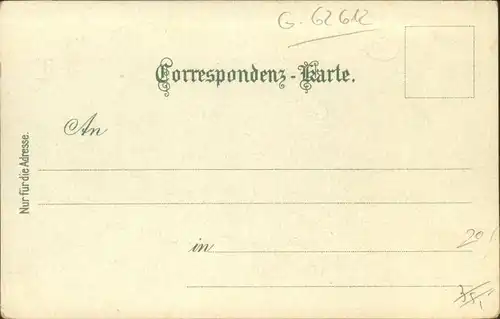 G. 62612
Correspondenz-Karte.
An
Nur für die Adresse.
in
20